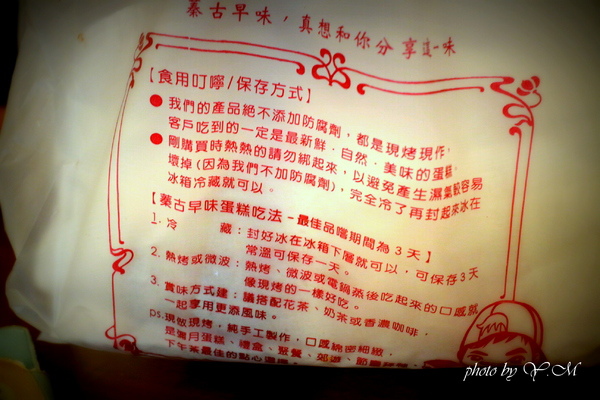 蓁古早味，真想和你分享這一味
【食用叮嚀/保存方式】
● 我們的產品絕不添加防腐劑，都是現烤現作，
客戶吃到的一定是最新鮮．自然．美味的蛋糕。
● 剛購買時熱熱的請勿綁起來，以避免產生濕氣較容易
壞掉(因為我們不加防腐劑)，完全冷了再封起來冰在
冰箱冷藏就可以。
【蓁古早味蛋糕吃法－最佳品嚐期間為3天】
1. 冷 藏：封好冰在冰箱下層就可以，可保存3天
常溫可保存一天。
2. 熱烤或微波：熱烤、微波或電鍋蒸後吃起來的口感就
像現烤的一樣好吃。
3. 賞味方式建：議搭配花茶、奶茶或香濃咖啡，
一起享用更添風味。
ps.現做現烤，純手工製作，口感綿密細緻，
是彌月蛋糕、禮盒、聚餐、郊遊、節慶
下午茶最佳的點心選擇
photo by Y.M